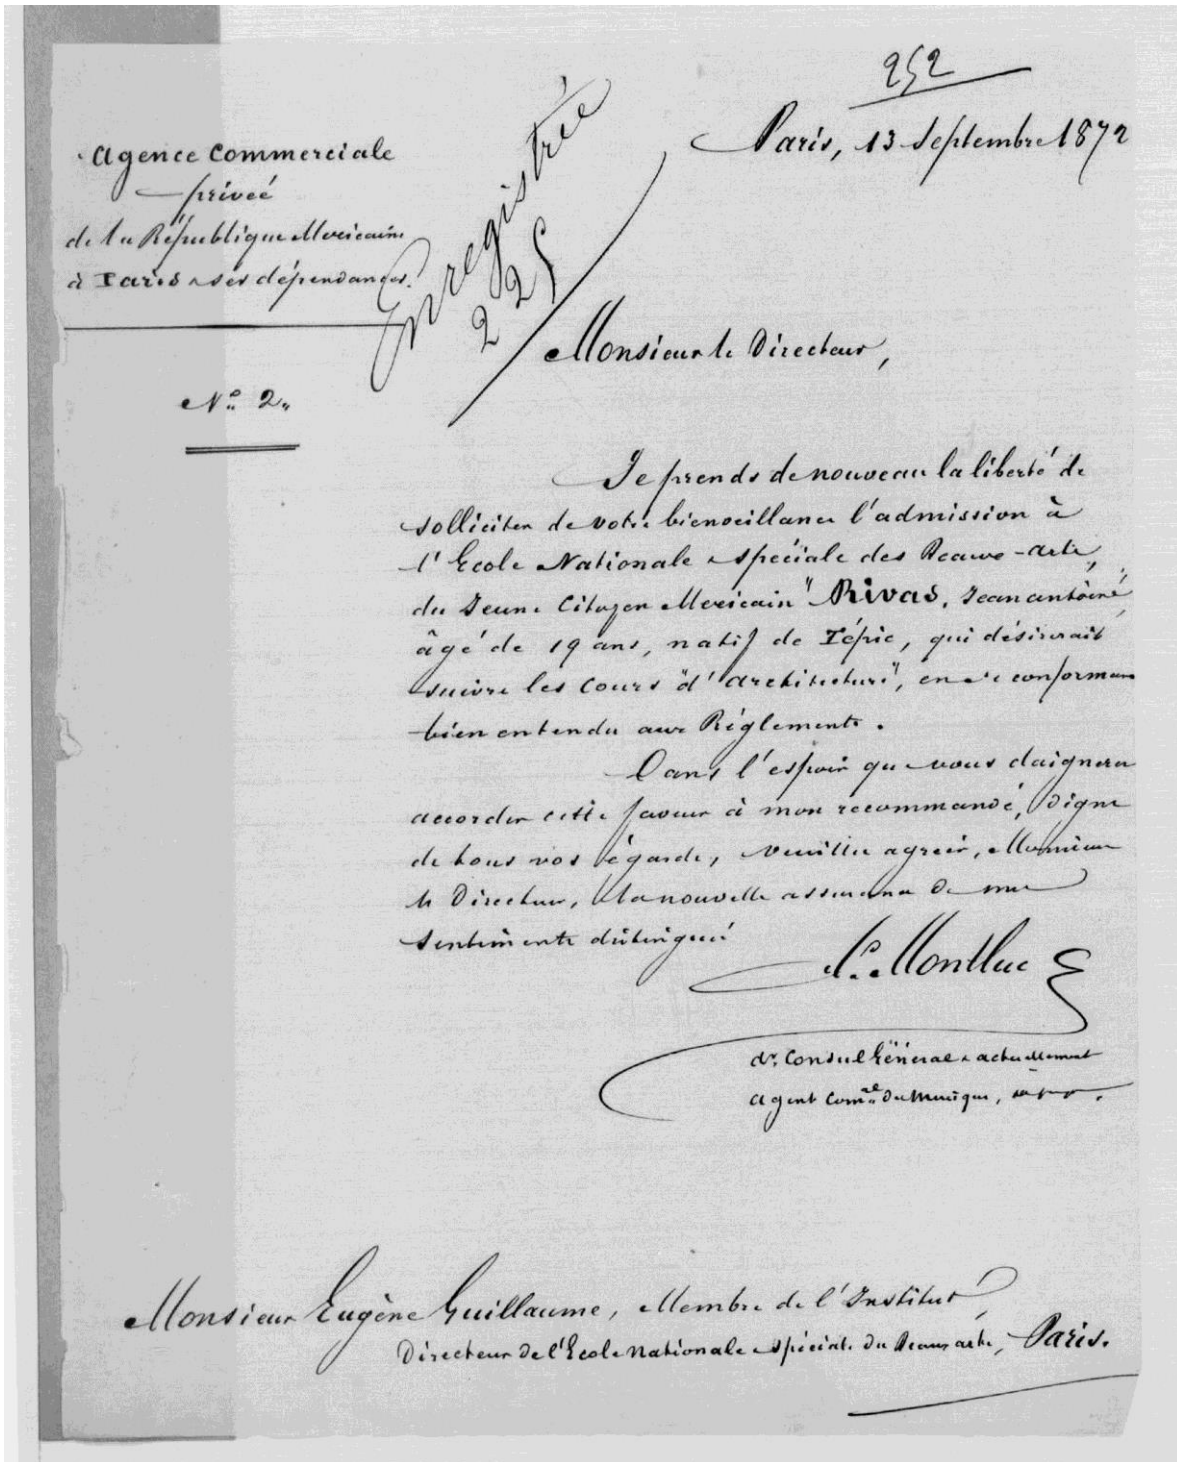 252
Paris, 13 Septembre 1872
Agence Commerciale
privée
de la République Mexicaine
à Paris & ses dépendances.
Enregistrée
225
Monsieur le Directeur,
N.º 2.
Je prends de nouveau la liberté de
solliciter de votre bienveillance l'admission à
l'Ecole Nationale & spéciale des Beaux-arts,
du Jeune Citoyen Mexicain "Rivas, Jean antoine,
âgé de 19 ans, natif de Tépic, qui désirerait
suivre les Cours "d'architecture", en se conformant
bien entendu aux Réglements.
Dans l'espoir que vous daignerez
accorder cette faveur à mon recommandé, digne
de tous vos égards, veuillez agréer, Monsieur
le Directeur, la nouvelle assurance de mes
sentiments distingués
Montluc
Consul Général & actuellement
agent Com.al du Mexique,
Monsieur Eugène Guillaume, Membre de l'Institut,
Directeur de l'Ecole Nationale & spéciale des Beaux arts, Paris.